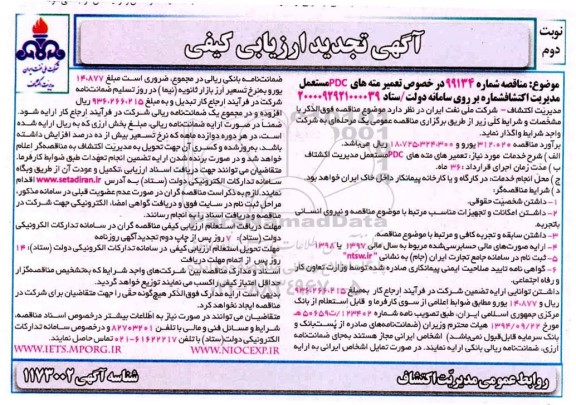 نوبت
دوم
آگهی تجدید ارزیابی کیفی
موضوع: مناقصه شماره 99134 در خصوص تعمیر مته های PDC مستعمل
مدیریت اکتشاف شماره بر روی سامانه دولت/ستاد 2000092921000039
مدیریت اکتشاف - شرکت ملی نفت ایران در نظر دارد موضوع مناقصه فوق الذکر با
مشخصات و شرایط کلی زیر از طریق برگزاری مناقصه عمومی یک مرحله‌ای به شرکت
واجد شرایط واگذار نماید.
برآورد مناقصه 312،020 یورو و 18،725،324،300 ریال می‌باشد.
الف) شرح خدمات مورد نیاز: تعمیر مته های PDC مستعمل مدیریت اکتشاف
ب) مدت زمان اجرای قرارداد: 36 ماه.
ج) محل انجام خدمات: در کارگاه و یا کارخانه پیمانکار داخل خاک ایران خواهد بود.
د) شرایط مناقصه‌گر:
1- داشتن شخصیّت حقوقی.
2- داشتن امکانات و تجهیزات مناسب مرتبط با موضوع مناقصه و نیروی انسانی
باتجربه.
3- داشتن سابقه و تجربه کافی و مرتبط با موضوع مناقصه.
4- ارایه صورت‌های مالی حسابرسی‌شده مربوط به سال مالی 1397 یا 1398
5- ثبت نام در سامانه جامع تجارت ایران (جام) به نشانی "ntsw.ir"
6- گواهی نامه تایید صلاحیت ایمنی پیمانکاری صادره شده توسط وزارت تعاون کار
و رفاه اجتماعی.
داشتن توانایی ارایه تضمین شرکت در فرآیند ارجاع کار به‌مبلغ 936،266،215
ریال و 14،877 یورو مطابق ضوابط اعلامی از سوی کارفرما و قابل استعلام از بانک
مرکزی جمهوری اسلامی ایران، طبق تصویب نامه شماره 123402/ت50659هـ
مورخ 1394/09/22 هیات محترم وزیران (ضمانت‌نامه‌های صادره از پُست‌بانک و
بانک سرمایه قابل‌قبول نمی‌باشد) اشخاص ایرانی مجاز هستند به‌جای ضمانت‌نامه
ارزی، ضمانت‌نامه ریالی بانکی ارایه نمایند. در صورت تمایل اشخاص ایرانی به ارایه
ضمانت‌نامـه بانکی ریالی در مجموع، ضروری اسـت مبلغ 14،877
یورو به‌نرخ تسعیر ارز بازار ثانویه (نیما) در روز تسلیم ضمانت‌نامه
شرکت در فرآیند ارجاع کار تبدیل و به مبلغ 936،266،215 ریال
افزوده و در مجموع یک ضمانت‌نامه ریالی شرکت در فرآیند ارجاع کار ارایه شود.
ضمناً در صورت ارایه ضمانت‌نامه ریالی، مبلـغ بخش ارزی که به ریال ارایه شده
است، در هر دوره دوازده ماهه که نرخ تسـعیر بیش از ده درصد افزایش داشـته
باشد، به‌روز شده و کسری آن جهت تحویل به مدیریت اکتشاف به مناقصه‌گر اعلام
خواهد شد و در صورت برنده شدن ارایه تضمین انجام تعهدات طبق ضوابط کارفرما.
متقاضیان می توانند جهت دریافت اسناد ارزیابی، تکمیل و عودت آن از طریق وبگاه
سـامانه تدارکات الکترونیکی دولت (ستاد) به آدرس www.setadiran.ir اقدام
نمایند. لازم به ذکر است مناقصه گران در صورت عدم عضویت قبلی در سامانه مذکور،
مراحل ثبت نام در سایت فوق و دریافت گواهی امضا، الکترونیکی جهت شرکت در
مناقصه و دریافت اسناد را به انجام رسانند.
مهلت دریافت استعلام ارزیابی کیفی مناقصه گران در سامانه تدارکات الکترونیکی
دولت (ستاد): 7 روز پس از چاپ دوم تجدید آگهی روزنامه
مهلت تحویل استعلام ارزیابی کیفی در سامانه تدارکات الکترونیکی دولت (ستاد): 14
روز پس از اتمام مهلت دریافت
اسناد و مدارک مناقصه به شرکت‌های واجد شرایط که به‌تشخیص مناقصه‌گزار
حداقل امتیاز کیفی را کسب می نمایند توزیع خواهد گردید.
بدیهی است ارایه مدارک فوق‌الذکر هیچ‌گونه حقّی را جهت متقاضیان برای شرکت در
مناقصه ایجاد نخواهد کرد.
متقاضیـان می توانند در صورت نیاز به اطلاعات بیشتر درخصوص اسناد مناقصه،
شرایط و مسائل فنی و مالی با تلفـن 82703201 و درخصوص سامانه تدارکات
الکترونیکی دولت (ستاد) با تلفن 61622217-021 تماس حاصل نمایند.
WWW.IETS.MPORG.IR WWW.NIOCEXP.IR
روابط عمومی مدیریّت اکتشاف
شناسه آگهی 1173002